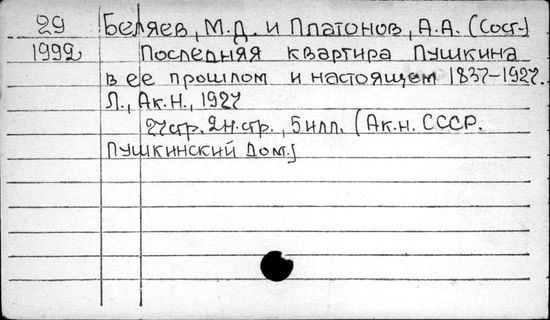 29 Беляев, М.Д. и Платонов, А.А. (Сост.)
1992 Последняя квартира Пушкина
в ее прошлом и настоящем 1837-1927.
Л., Ак.Н., 1927
27стр. 2н.стр., 5илл. (Ак.н. СССР.
Пушкинский Дом.)